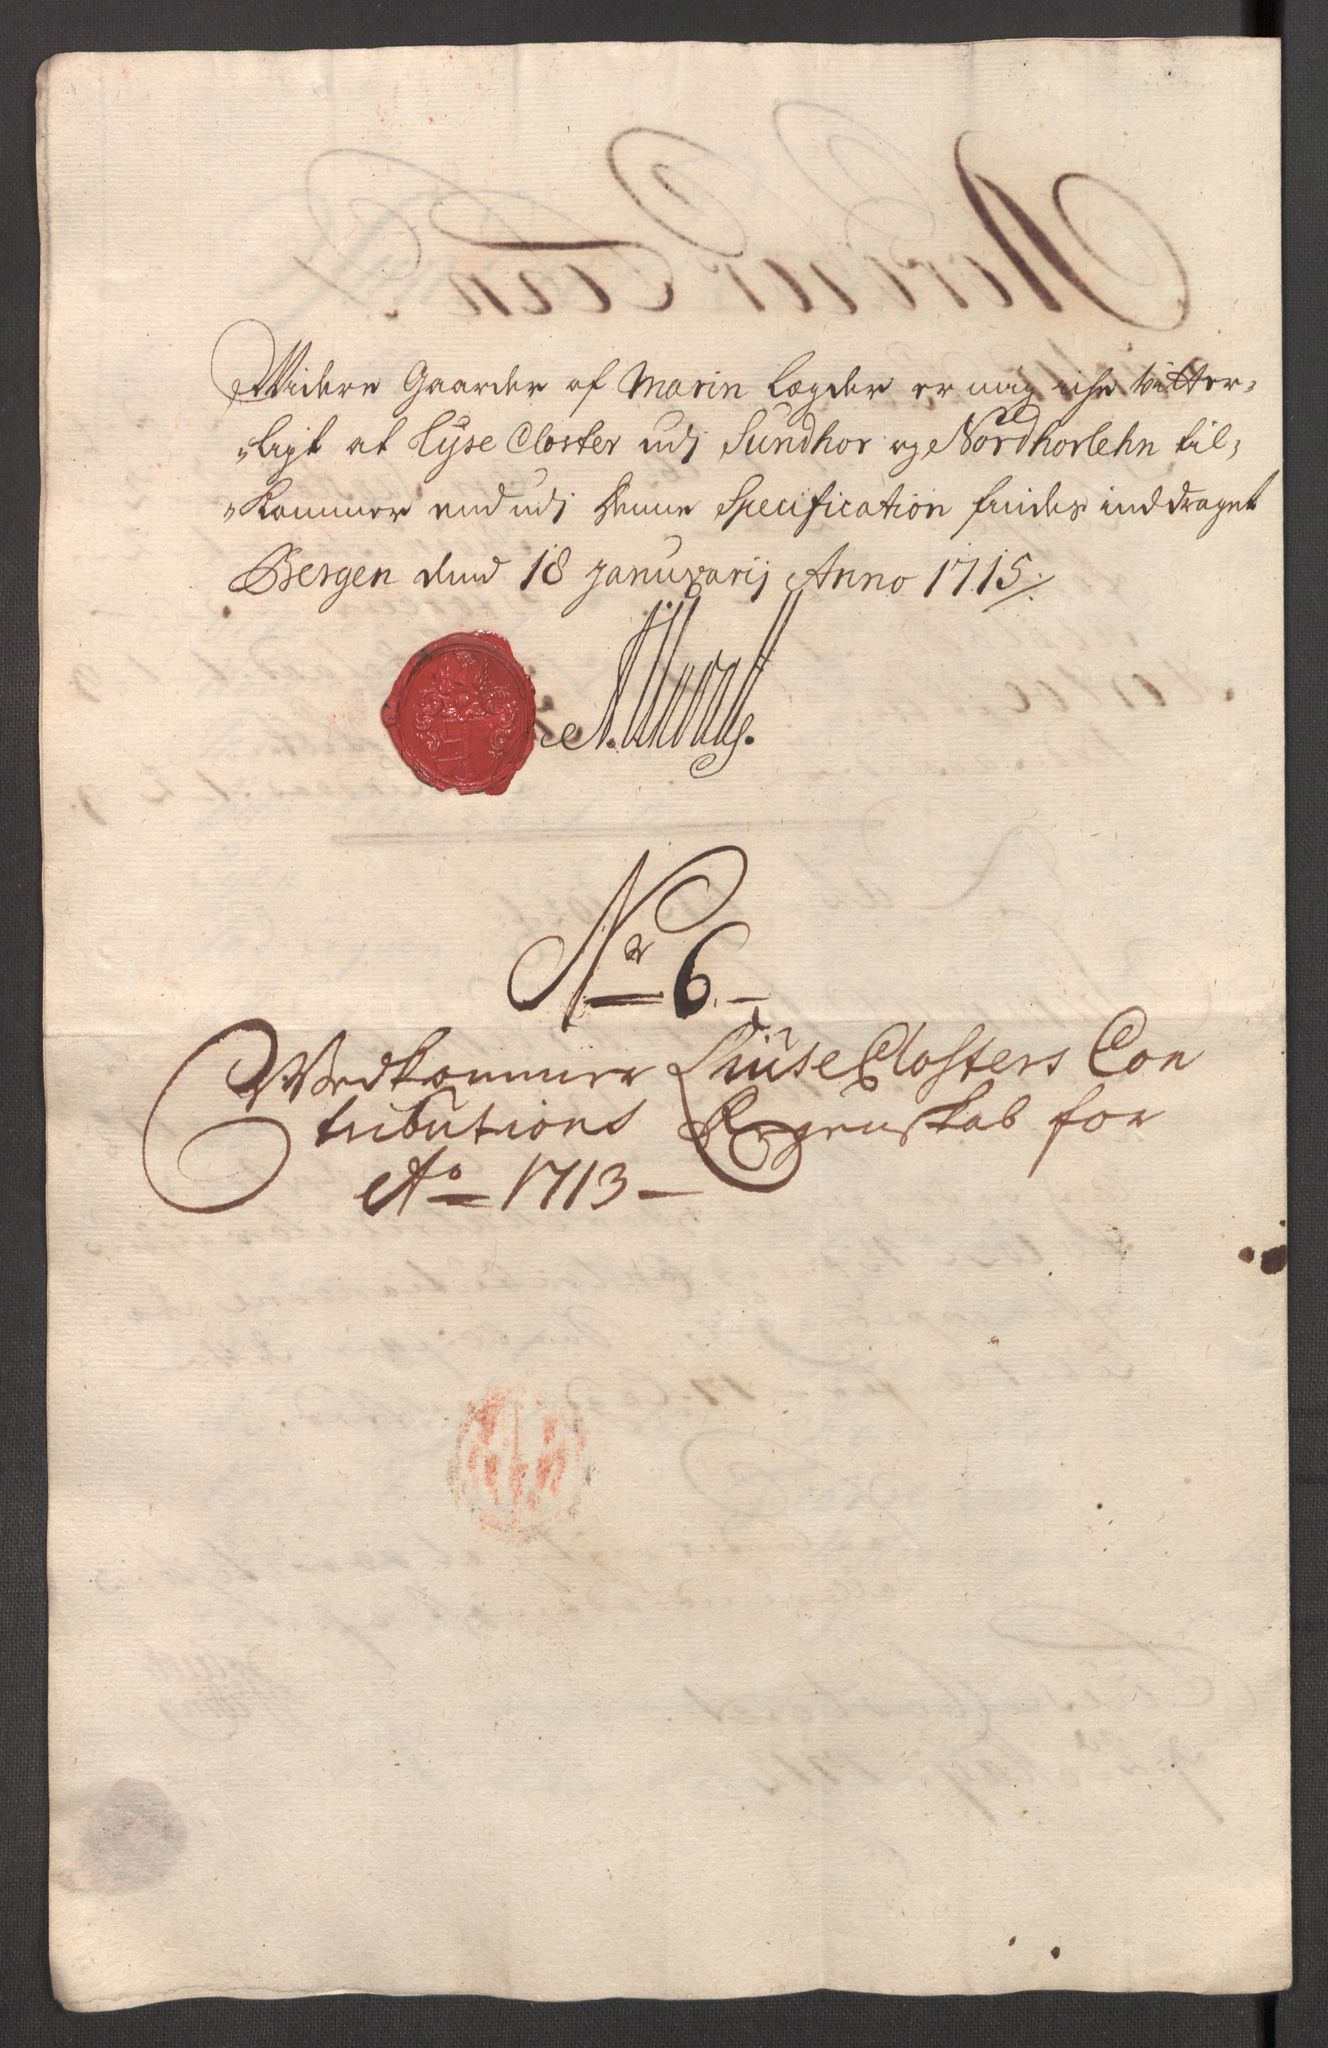 Widere Gaarder af Marin Lægder er mig iche vitter-
ligt at Lyse Closter udj Sundhor og Nordhorlehn til-
kommer end udj denne Specification findes inddraget
Bergen dend 18 Januarij Anno 1715
No 6.
Vedkommer Liuse Closters Con
tributions Regenskab for
Ao 1713